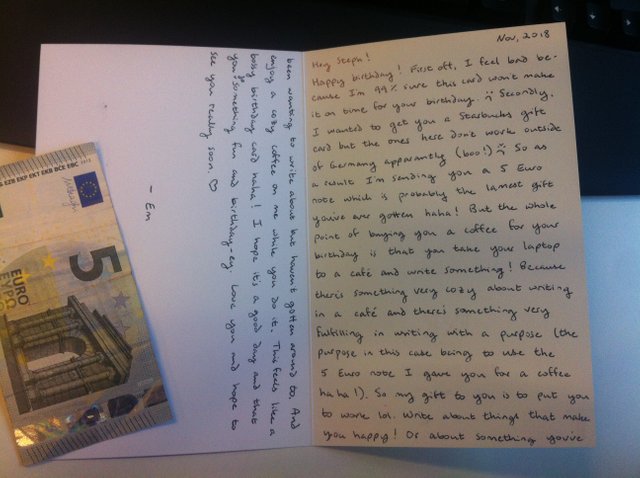 Nov, 2018
Hey Steph!
Happy birthday! First off, I feel bad be-
cause I'm 99% sure this card won't make
it on time for your birthday. :( Secondly,
I wanted to get you a Starbucks gift
card but the ones here don't work outside
of Germany apparantly (boo!) :( So as
a result I'm sending you a 5 Euro
note which is probably the lamest gift
you've ever gotten haha! But the whole
point of buying you a coffee for your
birthday is that you take your laptop
to a café and write something! Because
there's something very cozy about writing
in a café and there's something very
fulfilling in writing with a purpose (the
purpose in this case being to use the
5 Euro note I gave you for a coffee
haha!). So my gift to you is to put you
to work lol. Write about things that make
you happy! Or about something you've
been wanting to write about but haven't gotten around to. And
enjoy a cozy coffee on me while you do it. This feels like a
bossy birthday card haha! I hope it's a good day and that
you do something fun and birthday-ey. Love you and hope to
see you really soon. ♡
- Em
5
EURO
ΕΥΡΩ